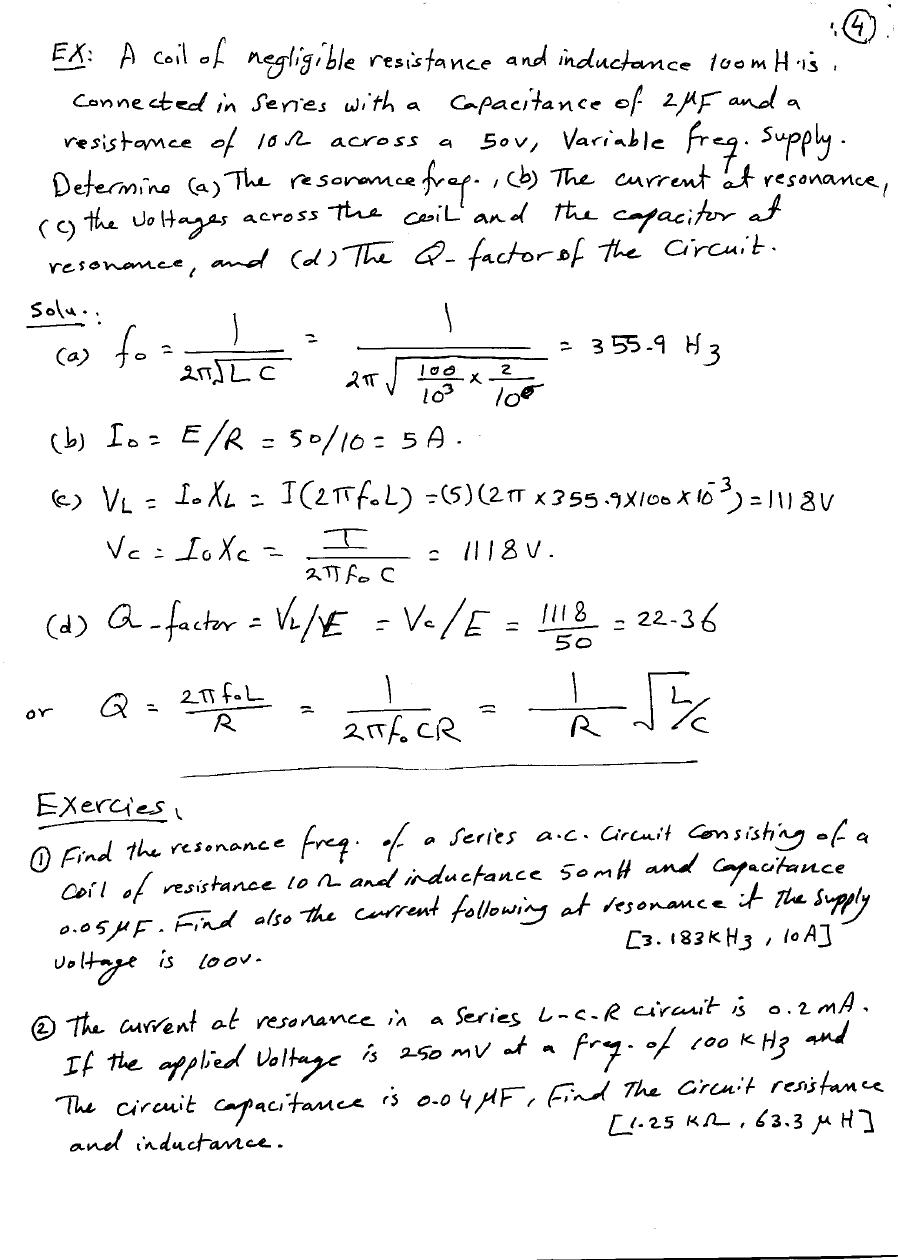 ④
EX: A coil of negligible resistance and inductance 100mH is
Connected in Series with a Capacitance of 2μF and a
resistance of 10Ω across a 50v, Variable freq. Supply.
Determine (a) The resonance freq., (b) The current at resonance,
(c) the Voltages across the coil and the capacitor at
resonance, and (d) The Q-factor of the Circuit.
Solu.:
(a) f₀ = 1/(2π√LC) = 1/(2π√(100/10³ × 2/10⁶)) = 355.9 Hz
(b) I₀ = E/R = 50/10 = 5A.
(c) VL = I₀XL = I(2πf₀L) = (5)(2π×355.9×100×10⁻³) = 1118V
Vc = I₀Xc = I/(2πf₀C) = 1118V.
(d) Q-factor = VL/E = Vc/E = 1118/50 = 22.36
or Q = 2πf₀L/R = 1/(2πf₀CR) = 1/R √(L/C)
Exercies,
① Find the resonance freq. of a Series a.c. Circuit Consisting of a
Coil of resistance 10Ω and inductance 50mH and Capacitance
0.05μF. Find also the current following at resonance if the Supply
Voltage is 100v. [3.183KHz, 10A]
② The current at resonance in a Series L-C-R circuit is 0.2mA.
If the applied Voltage is 250mV at a freq. of 100KHz and
The circuit capacitance is 0.04μF, Find The Circuit resistance
and inductance. [1.25KΩ, 63.3μH]